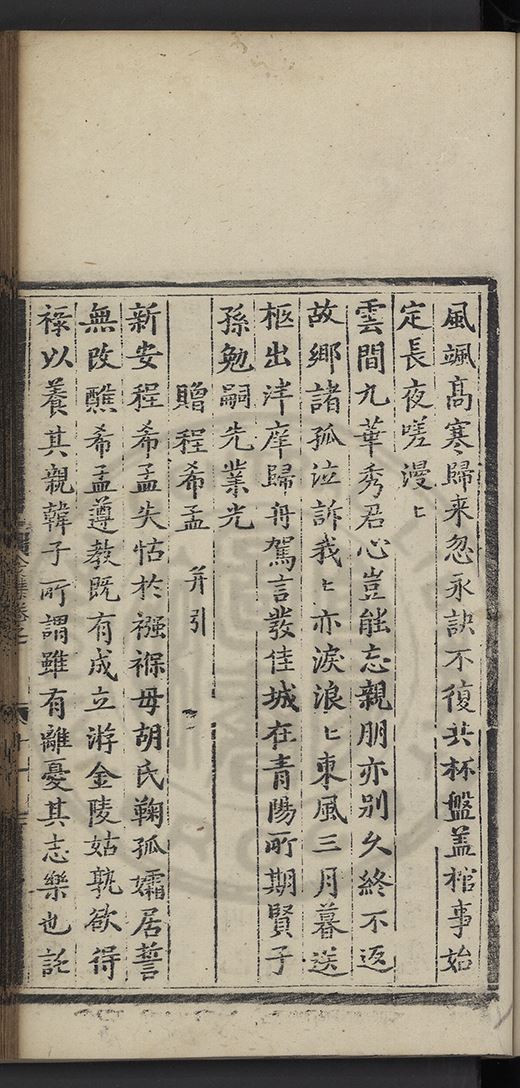 風颯高寒歸来忽永訣不復共杯盤盖棺事始
定長夜嗟漫〻
雲間九華秀君心豈能忘親朋亦别久終不返
故鄉諸孤泣訴我〻亦淚浪〻東風三月暮送
柩出泮庠歸舟駕言發佳城在青陽所期賢子
孫勉嗣先業光
贈程希孟 并引
新安程希孟失怙於襁褓母胡氏鞠孤孀居誓
無改醮希孟遵教既有成立游金陵姑孰欲得
禄以養其親韓子所謂雖有離憂其志樂也託